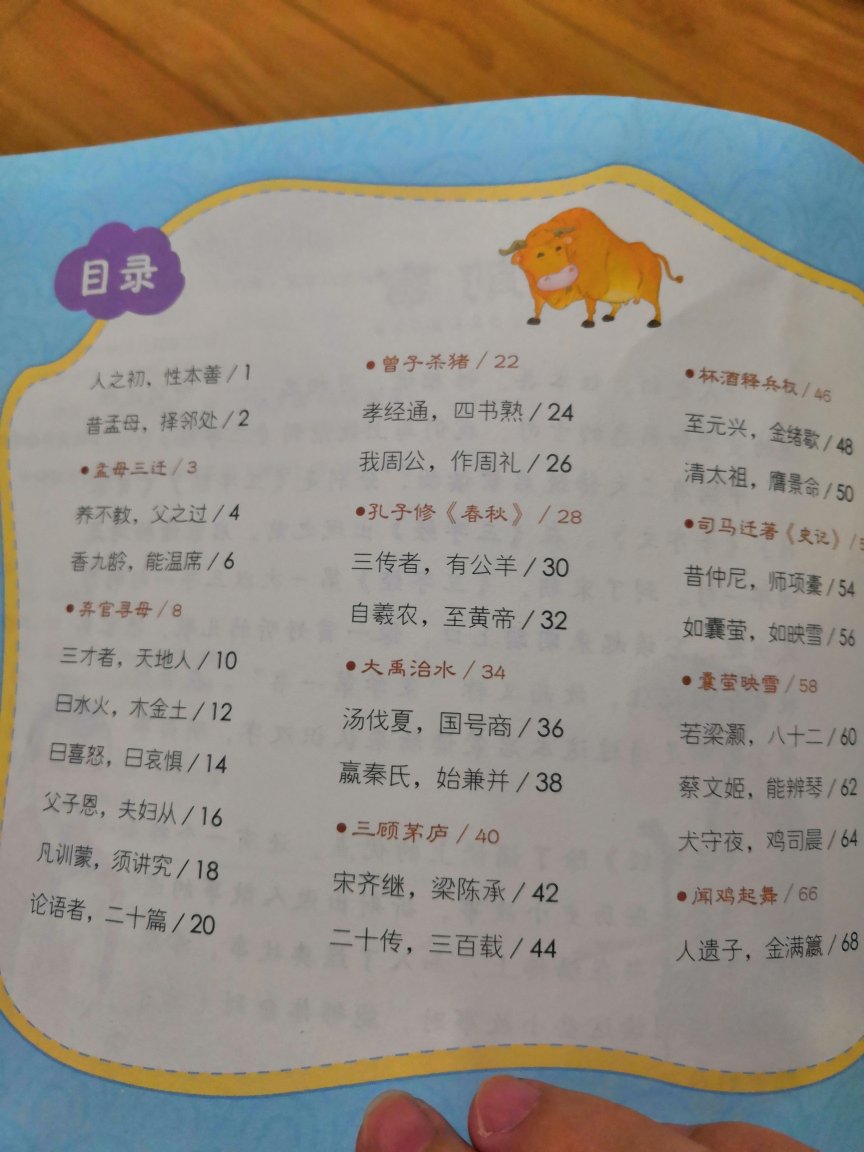 目录
人之初，性本善/1
昔孟母，择邻处/2
•孟母三迁/3
养不教，父之过/4
香九龄，能温席/6
•弃官寻母/8
三才者，天地人/10
曰水火，木金土/12
曰喜怒，曰哀惧/14
父子恩，夫妇从/16
凡训蒙，须讲究/18
论语者，二十篇/20
•曾子杀猪/22
孝经通，四书熟/24
我周公，作周礼/26
•孔子修《春秋》/28
三传者，有公羊/30
自羲农，至黄帝/32
•大禹治水/34
汤伐夏，国号商/36
嬴秦氏，始兼并/38
•三顾茅庐/40
宋齐继，梁陈承/42
二十传，三百载/44
•杯酒释兵权/46
至元兴，金绪歇/48
清太祖，膺景命/50
•司马迁著《史记》/
昔仲尼，师项橐/54
如囊萤，如映雪/56
•囊萤映雪/58
若梁灏，八十二/60
蔡文姬，能辨琴/62
犬守夜，鸡司晨/64
•闻鸡起舞/66
人遗子，金满籯/68